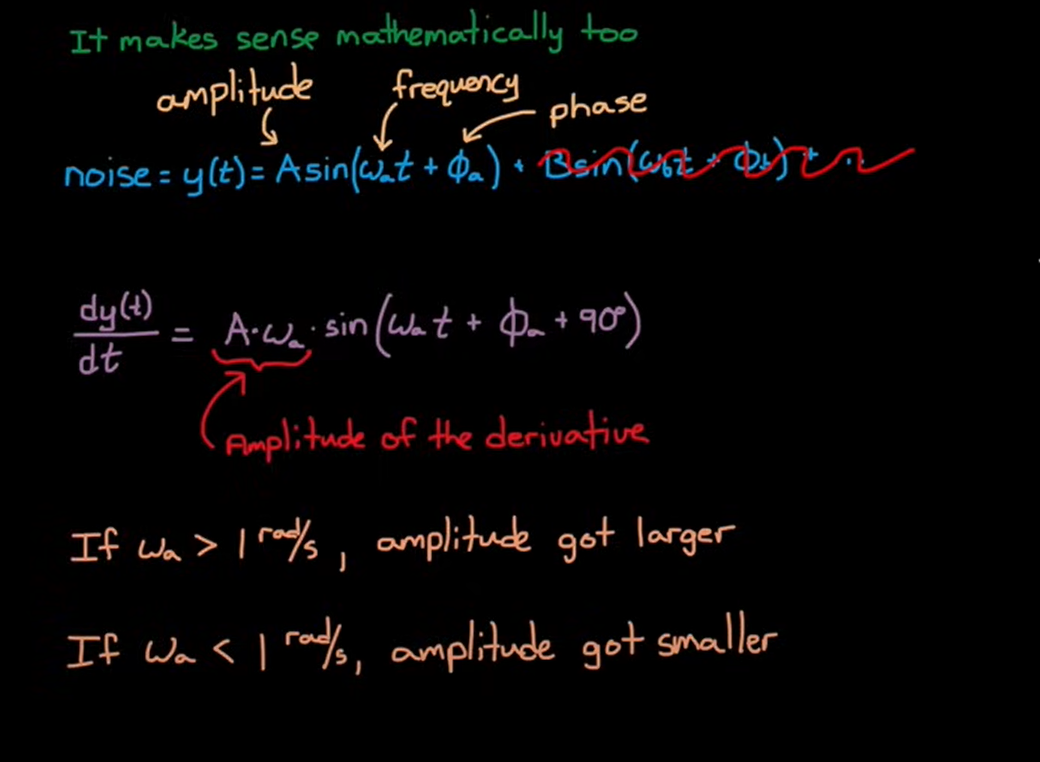 It makes sense mathematically too
amplitude
frequency
phase
noise = y(t) = A sin(ωₐt + ϕₐ) + B sin(ω_b t + ϕ_b) + ..
dy(t)/dt = A·ωₐ · sin(ωₐt + ϕₐ + 90°)
Amplitude of the derivative
If ωₐ > 1 rad/s, amplitude got larger
If ωₐ < 1 rad/s, amplitude got smaller